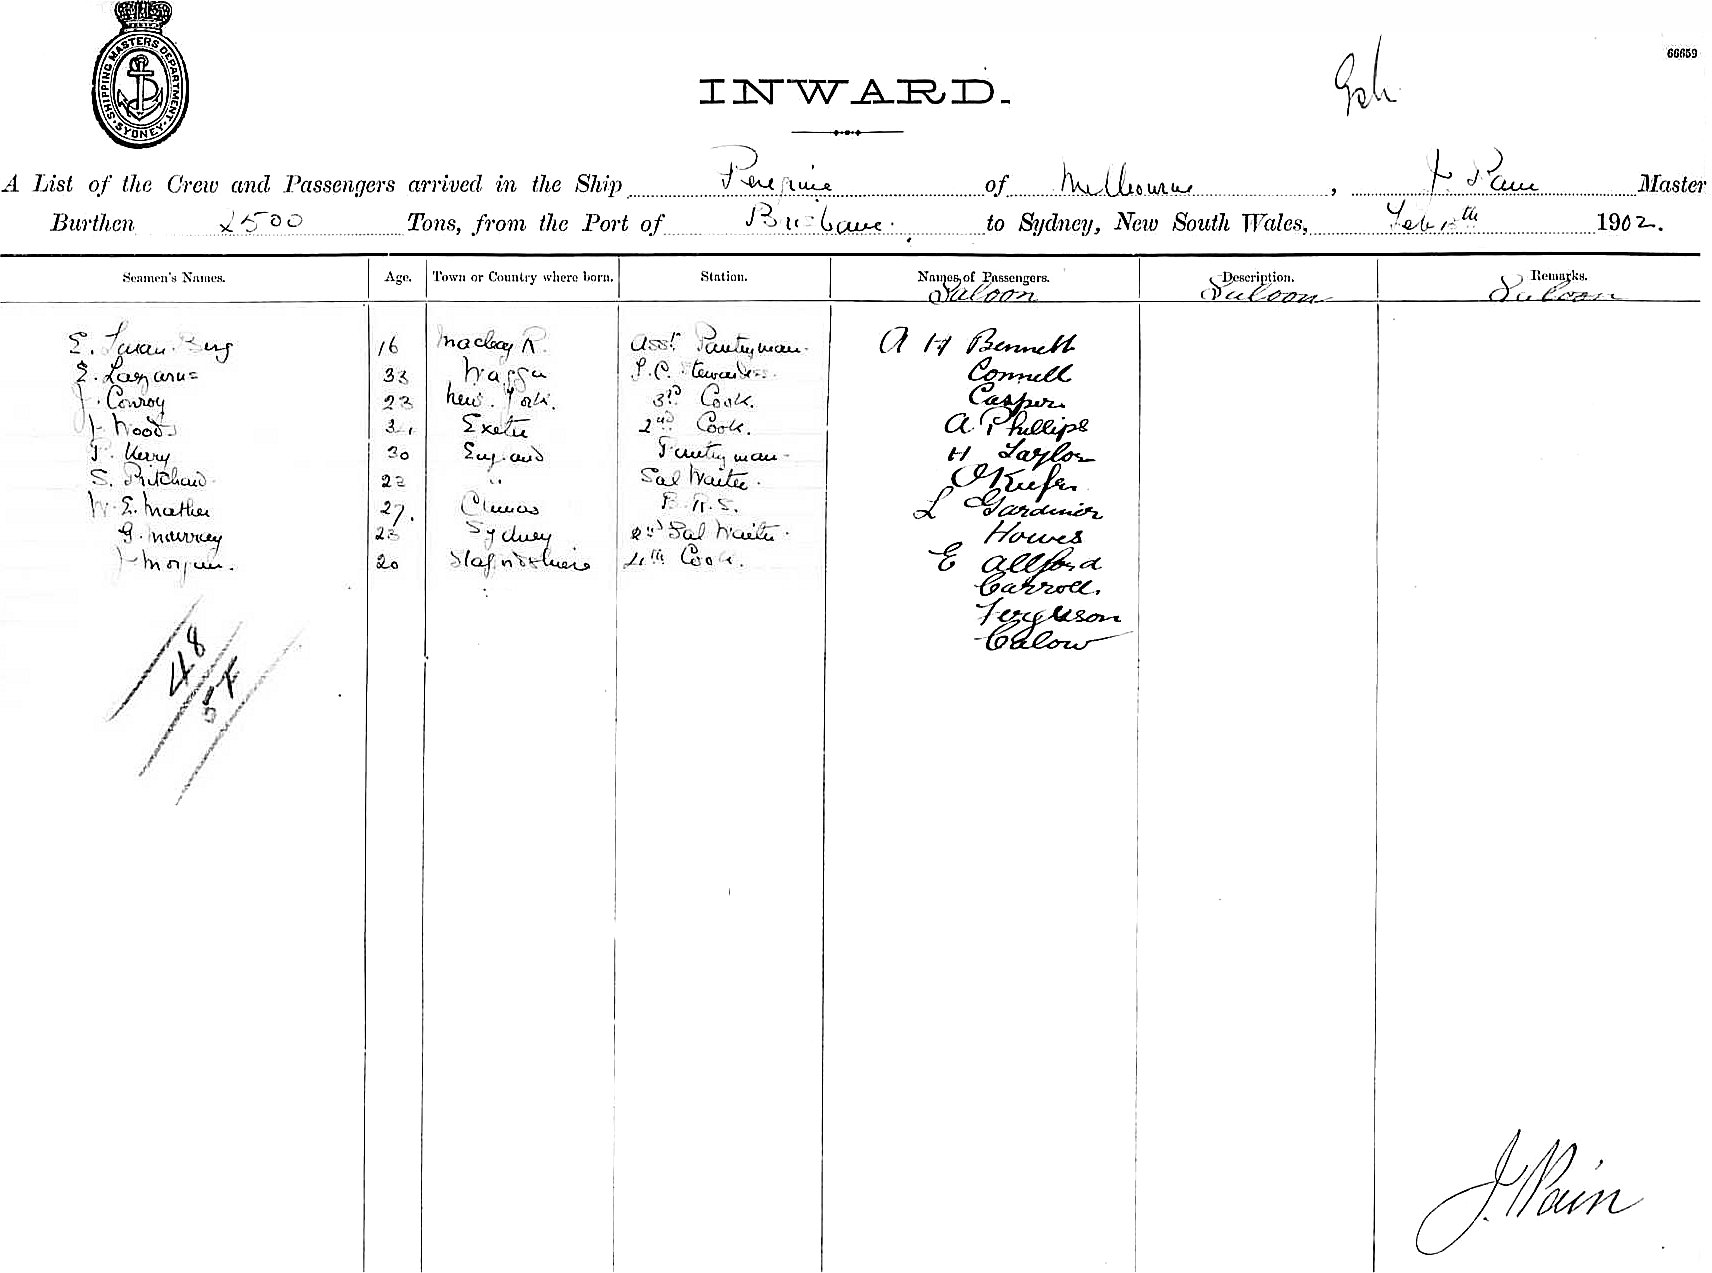 SHIPPING MASTERS DEPARTMENT. SYDNEY.
66659
INWARD.
A List of the Crew and Passengers arrived in the Ship Peregrine of Melbourne, J. Pain Master
Burthen 2500 Tons, from the Port of Brisbane. to Sydney, New South Wales, Feb 1902.
Seamen's Names. Age. Town or Country where born. Station. Names of Passengers. Description. Remarks.
Saloon Saloon Saloon
E. Berg 16 Mackay R. Asst Pantryman. A H Bennett
E. Lazarus 33 Wagga Stewardess. Connell
J. Conroy 23 New York. 3rd Cook. Casper
J Woods Exeter 2nd Cook. A Phillips
P. Kerry 30 England Pantryman H Taylor
S. Pritchard 23 " Sal Waiter. O'Keefe
W. E. Mather 27. B. R. S. L Gardiner
G. Murray 23 Sydney 2nd Sal Waiter. Howes
J Morgan. 20 Staffordshire 4th Cook. E Allford
Carroll.
Ferguson
Calow
48
54
J. Pain